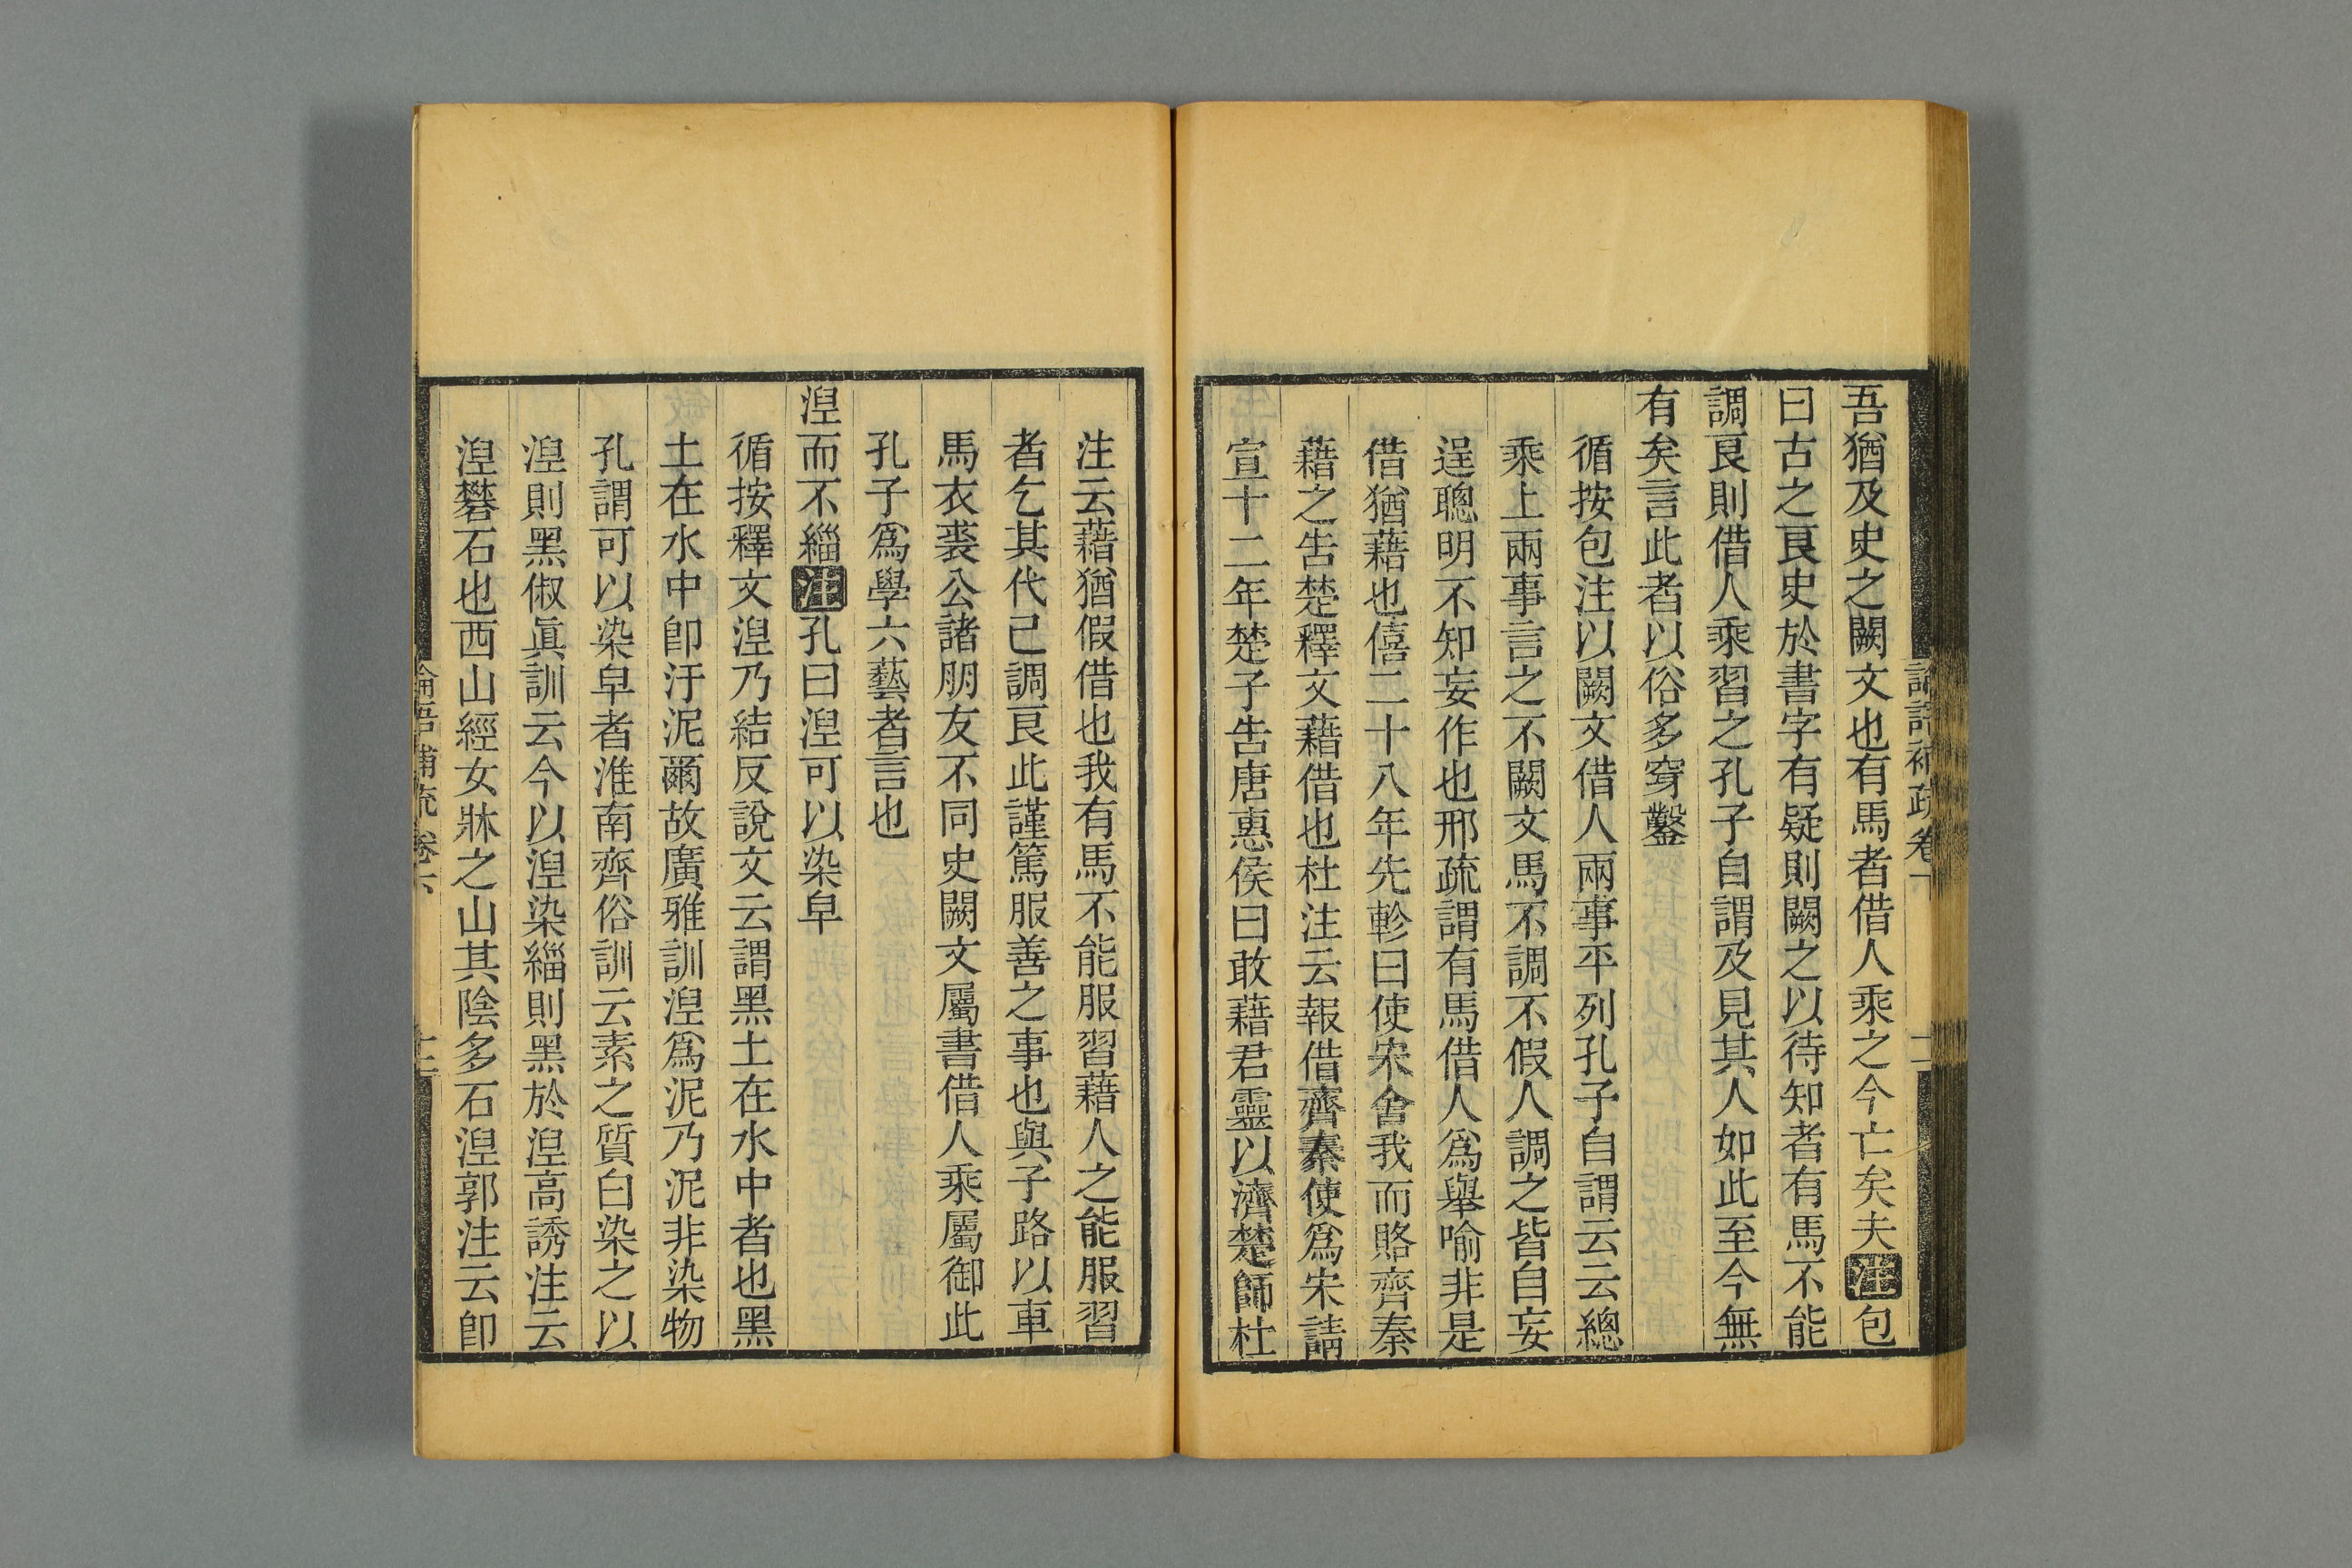 吾猶及史之闕文也有馬者借人乘之今亡矣夫注包
曰古之良史於書字有疑則闕之以待知者有馬不能
調良則借人乘習之孔子自謂及見其人如此至今無
有矣言此者以俗多穿鑿
循按包注以闕文借人兩事平列孔子自謂云云總
乘上兩事言之不闕文馬不調不假人調之皆自妄
逞聰明不知妄作也邢疏謂有馬借人爲舉喻非是
借猶藉也僖二十八年先軫曰使宋舍我而賂齊秦
藉之告楚釋文藉借也杜注云報借齊秦使爲宋請
宣十二年楚子告唐惠侯曰敢藉君靈以濟楚師杜
注云藉猶假借也我有馬不能服習藉人之能服習
者乞其代己調良此謹篤服善之事也與子路以車
馬衣裘公諸朋友不同史闕文屬書借人乘屬御此
孔子爲學六藝者言也
湼而不緇注孔曰湼可以染皁
循按釋文湼乃結反說文云謂黑土在水中者也黑
土在水中卽汙泥爾故廣雅訓湼爲泥乃泥非染物
孔謂可以染皁者淮南齊俗訓云素之質白染之以
湼則黑俶眞訓云今以湼染緇則黑於湼高誘注云
湼礬石也西山經女牀之山其陰多石湼郭注云卽
論語補疏卷